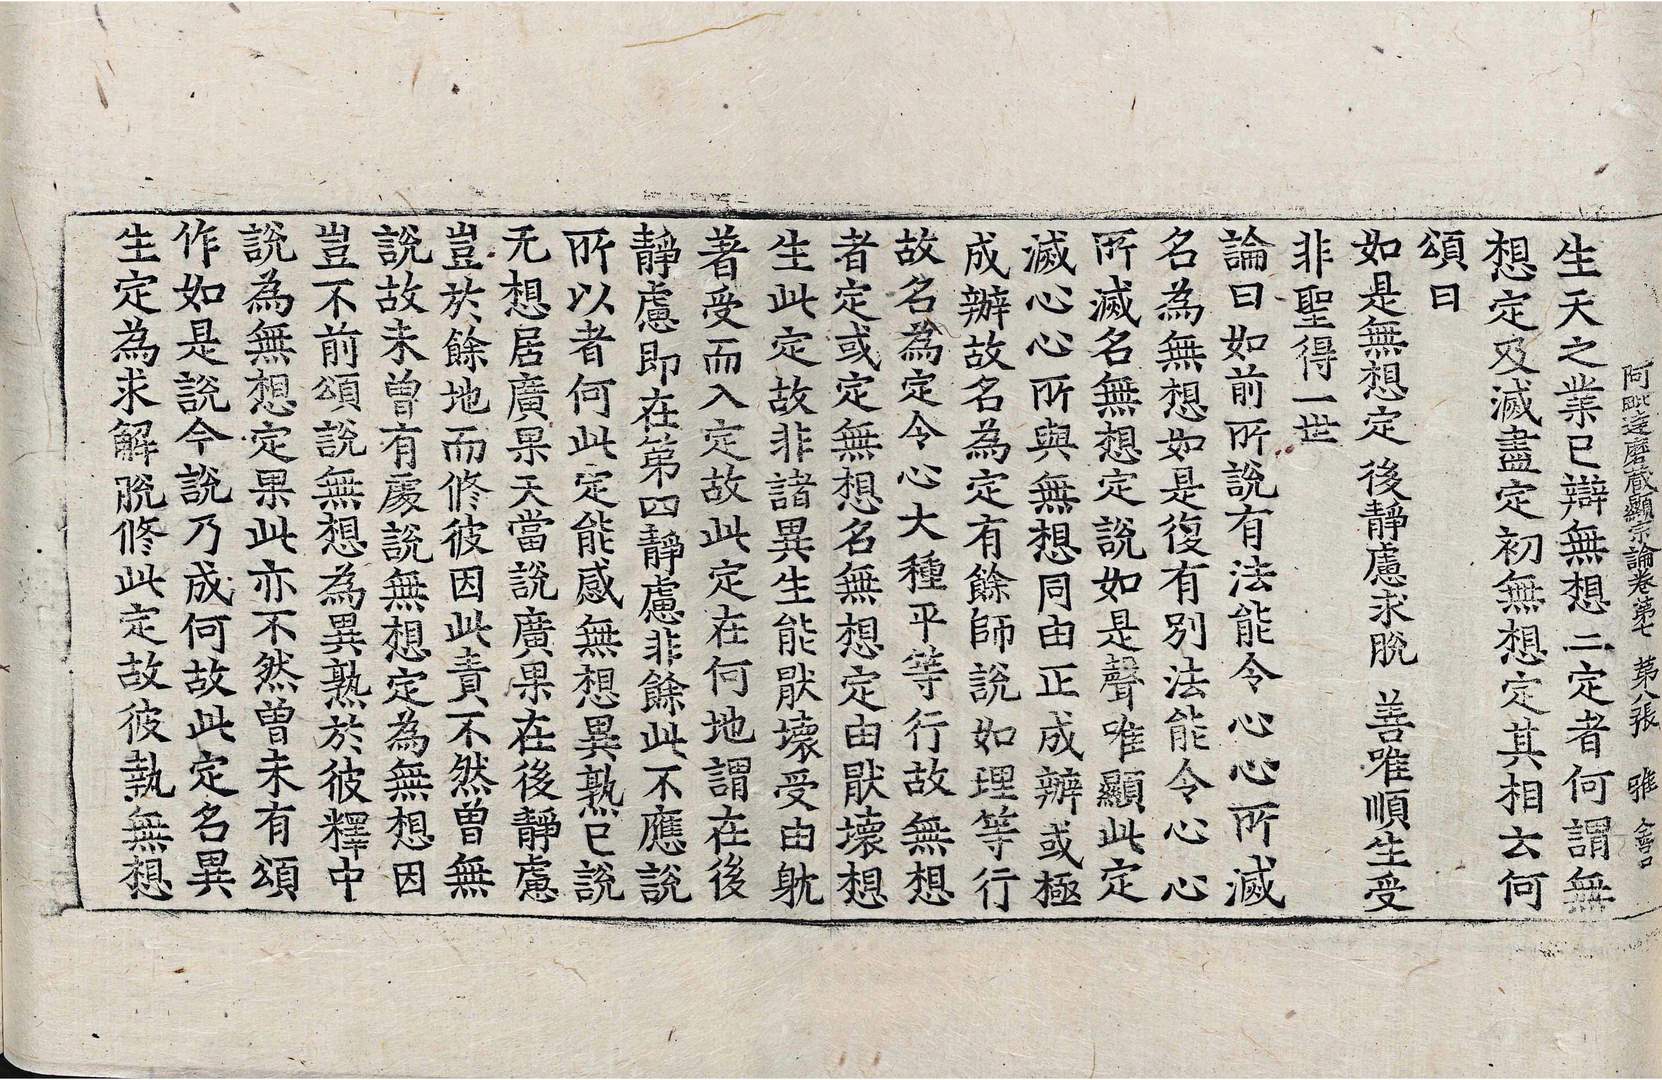 阿毗達磨藏顯宗論卷第七　第八張　雅
生天之業已辯無想二定者何謂無
想定及滅盡定初無想定其相云何
頌曰
如是無想定　後靜慮求脫　善唯順生受
非聖得一世
論曰如前所說有法能令心心所滅
名為無想如是復有別法能令心心
所滅名無想定說如是聲唯顯此定
滅心心所與無想同由正成辦或極
成辦故名為定有餘師說如理等行
故名為定令心大種平等行故無想
者定或定無想名無想定由猒壞想
生此定故非諸異生能猒壞受由躭
著受而入定故此定在何地謂在後
靜慮即在第四靜慮非餘此不應說
所以者何此定能感無想異熟已說
无想居廣果天當說廣果在後靜慮
豈於餘地而修彼因此責不然曾無
說故未曾有處說無想定為無想因
豈不前頌說無想為異熟於彼釋中
說為無想定果此亦不然曾未有頌
作如是說今說乃成何故此定名異
生定為求解脫修此定故彼執無想